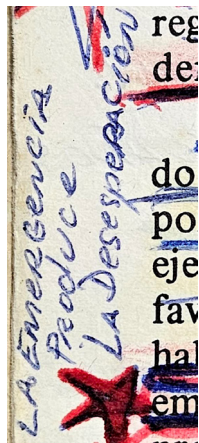 LA EMERGENCIA
PRODUCE
LA DESESPERACIÓN
reg
der
do
po
eje
fav
hal
em